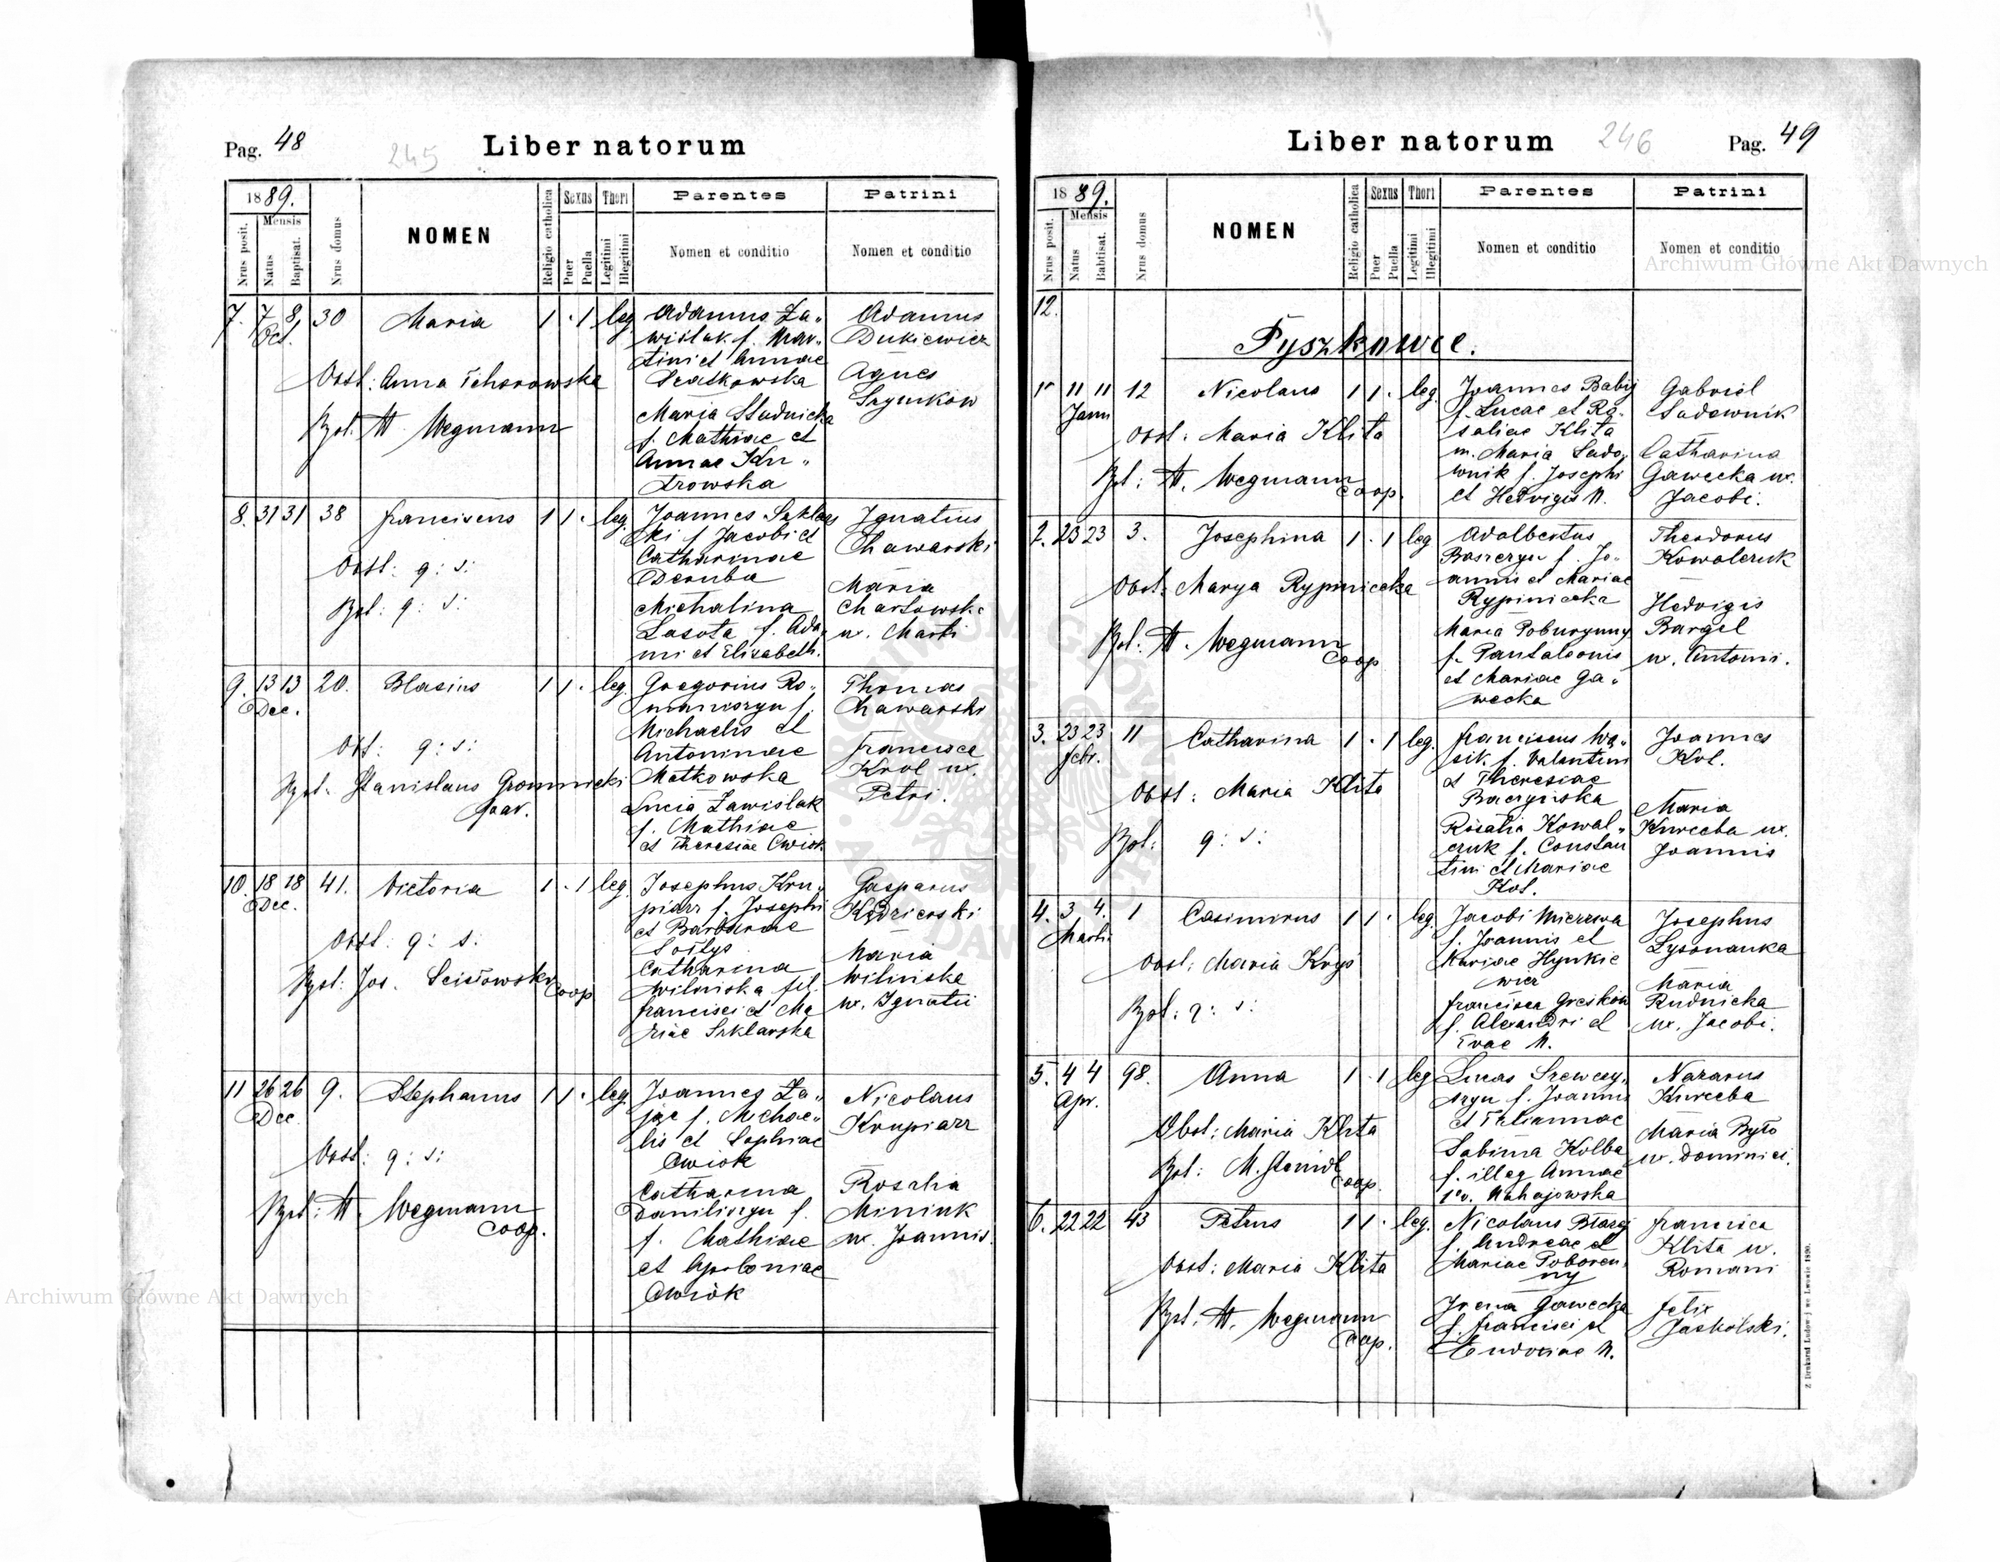 Pag. 48
245
Liber natorum
1889.
Mensis
Nrus posit.
Natus
Baptisat.
Nrus domus
NOMEN
Religio catholica
Sexus
Puer
Puella
Thori
Legitimi
Illegitimi
Parentes
Nomen et conditio
Patrini
Nomen et conditio
7. 7 8 30 Maria 1 . 1 leg
Oct.
Obst: Anna Tchorowska
Bpt. A Wegmann
Adamus Za„
wiślak f. Mar„
tini et Annae
Maria Studnicka
f. Mathiae et
Annae Ku„
trowska
Adamus
Dukiewicz
Agnes
Szymków
8. 31 31 38 Franciscus 1 1 . leg.
Obst: q: s:
Bpt: q: s:
Joannes Szklars
ki f Jacobi et
Catharinae
Deruba
Michalina
Lasota f. Ada„
mi et Elisabeth.
Ignatius
Chawarski
Maria
u. Marti
9. 13 13 20. Blasius 1 1 . leg.
Dec.
Obst: q: s:
Bpt. Stanislaus Gromnicki
par.
Gregorius Ro„
maniczyn f.
Michaelis et
Antoninae
Matkowska
Lucia Zawiślak
f. Mathiae
et Theresiae Cwiok
Thomas
Chawarski
Francisca
Król ux.
Petri.
10. 18 18 41. Victoria 1 . 1 leg.
Dec.
Obst: q: s:
Bpt: Jos. Scisłowski
coop
Josephus Kru„
piarz f. Josephi
et Barbarae
Sołtys
Catharina
Wilniska fil.
Francisci et Ma
riae Szklarska
Gasparus
Kędzierski
Maria
Wilniska
u. Ignatii
11 26 26 9. Stephanus 1 1 . leg.
Dec
Obst: q: s:
Bpt: A. Wegmann
coop.
Joannes Za„
jąc f. Michae„
lis et Sophiae
Cwiok
Catharina
Daniliczyn f.
f. Mathiae
et Apoloniae
Cwiók
Nicolaus
Krupiarz
Rosalia
Miniuk
ux. Joannis.
Liber natorum
246
Pag. 49
1889.
Mensis
Nrus posit.
Natus
Babtisat.
Nrus domus
NOMEN
Religio catholica
Sexus
Puer
Puella
Thori
Legitimi
Illegitimi
Parentes
Nomen et conditio
Patrini
Nomen et conditio
12.
Pyszkowce.
1 11 11 12 Nicolaus 1 1 . leg.
Jann
Obst: Maria Klita
Bpt: A. Wegmann
coop.
Joannes Babij
f. Lucae et Ro„
saliae Klita
m. Maria Sado„
wnik f. Josephi
et Hedvigis N.
Gabriel
Sadownik
Catharina
Gawecka ux.
Jacobi.
2. 23 23 3. Josephina 1 . 1 leg
Obst: Marya Rypiniecka
Bpt: A. Wegmann
coop
Adalbertus
f. Jo„
annis et Mariae
Rypiniecka
Maria Poburynny
f. Pantaleonis
et Mariae Ga„
wecka
Theodorus
Kowalczuk
Hedvigis
Bargel
ux. Antonii.
3. 23 23 11 Catharina 1 . 1 leg.
Febr.
Obst: Maria Klita
Bpt: q: s:
Franciscus Wą„
sik f. Valentini
et Theresiae
Baczyńska
Rosalia Kowal„
czuk f. Constan
tini et Mariae
Kol.
Joannes
Kol.
Maria
Kurceba ux.
Joannis
4. 3 4. 1 Casimirus 1 1 . leg.
Martii
Obst: Maria Kryś
Bpt: q: s:
Jacobi Mierzwa
f. Joannis et
Mariae Hynkie
wicz
Francisca Greśków
f. Alexandri et
Evae N.
Josephus
Maria
Rudnicka
ux. Jacobi.
5. 4 4 98. Anna 1 . 1 leg
Apr.
Obst: Maria Klita
Bpt: M. Steindl
coop.
Lucas Szewczy„
szyn f. Joannis
et Tatiannae
Sabina Kolba
f. illeg Annae
1º v. Mahajowska
Nazarus
Kurceba
Maria Było
ux. Dominici.
6. 22 22 43 Petrus 1 1 . leg.
Obst: Maria Klita
Bpt. A. Wegmann
coop.
Nicolaus
f. Andreae et
Mariae Poboren
ny
Irena Gawecka
f. Francisci et
Eudociae N.
Francisca
Klita u.
Romani
Felix
Jacholski.
Z Drukarni Ludowej we Lwowie 1890.
Archiwum Główne Akt Dawnych
Archiwum Główne Akt Dawnych